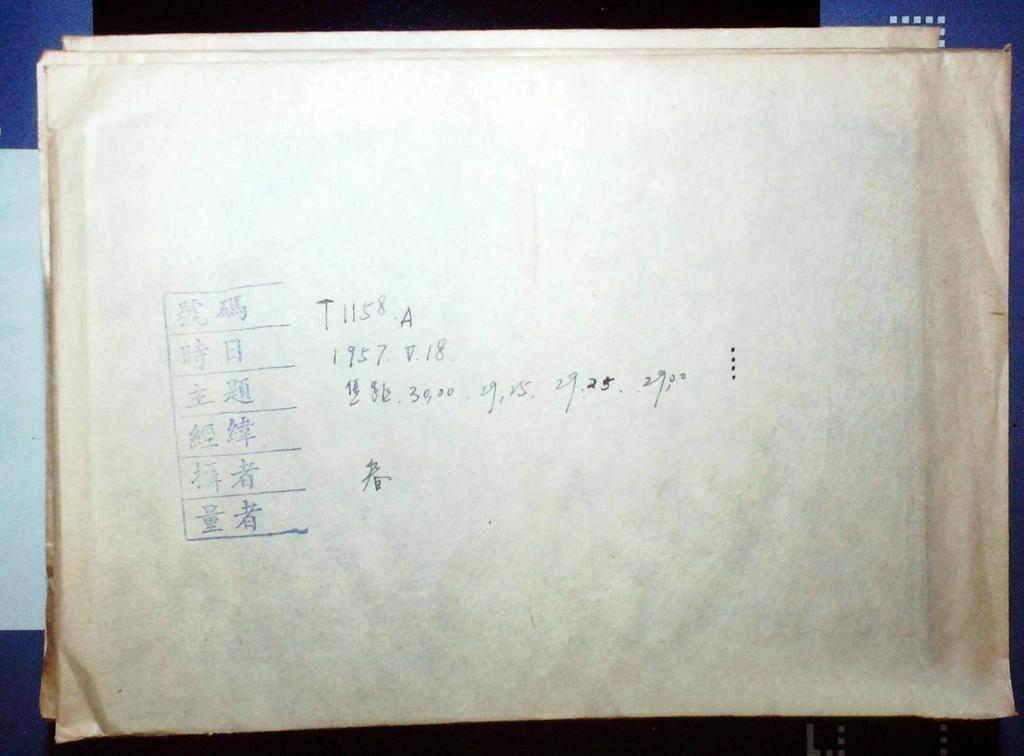 號碼 T1158.A
時日 1957.V.18.
主題 焦距.30,00.29,25.29.25.29,00
經緯
攝者 春
量者